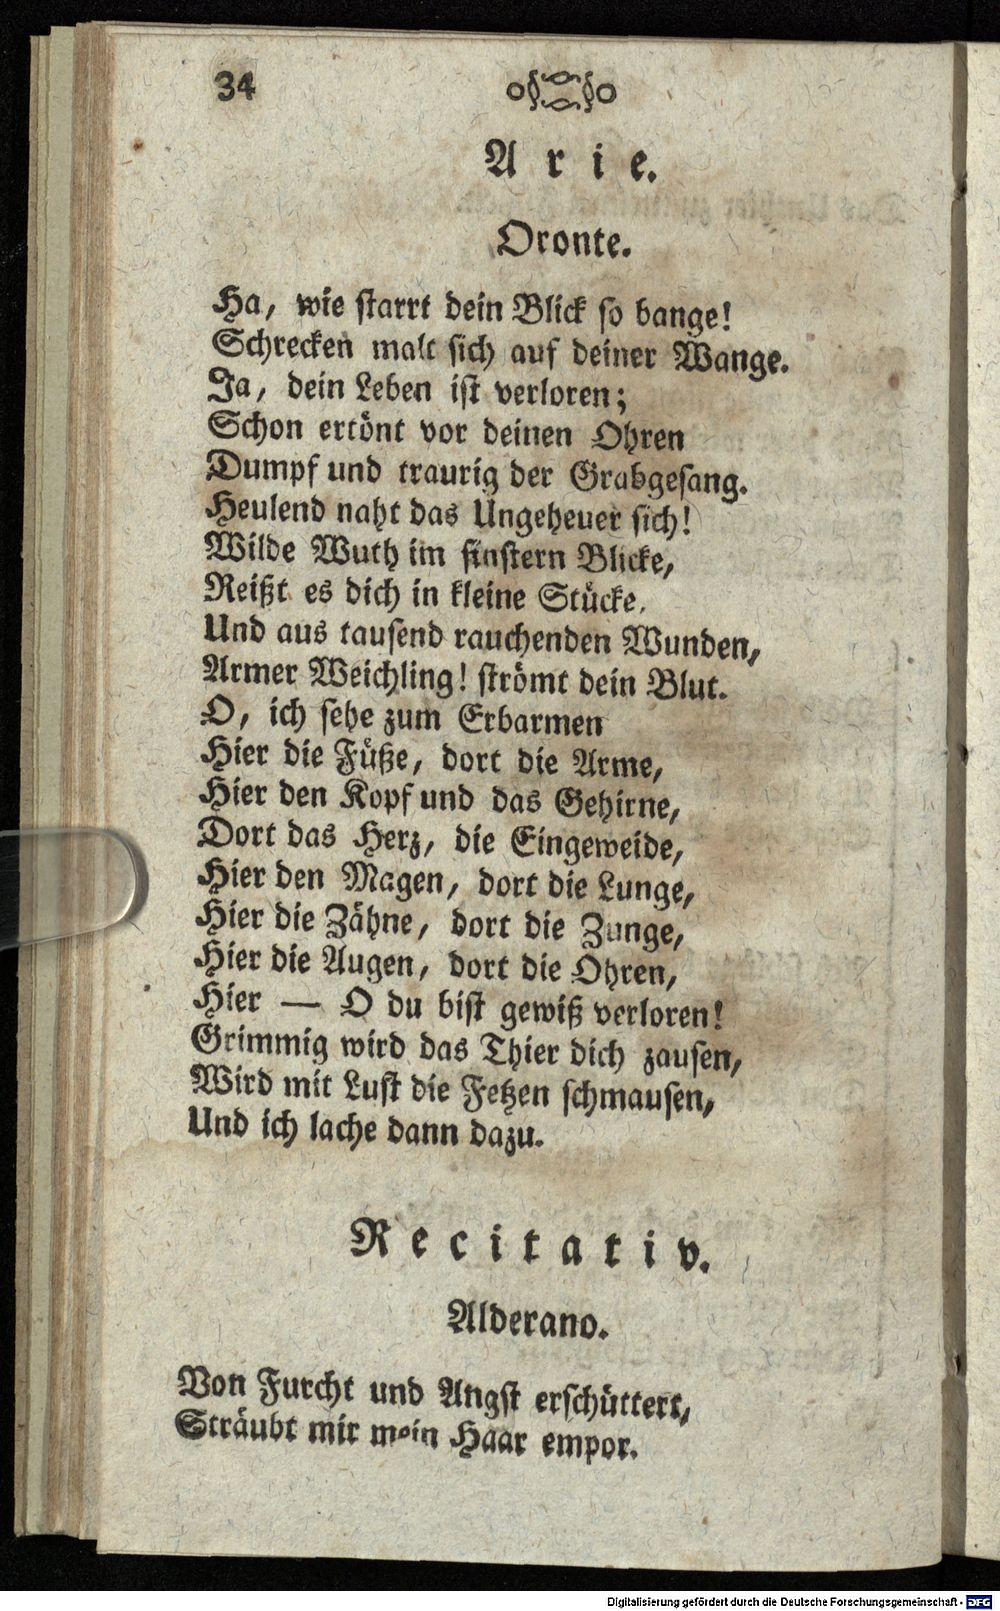 34
Arie.
Oronte.
Ha, wie starrt dein Blick so bange!
Schrecken malt sich auf deiner Wange.
Ja, dein Leben ist verloren;
Schon ertönt vor deinen Ohren
Dumpf und traurig der Grabgesang.
Heulend naht das Ungeheuer sich!
Wilde Wuth im finstern Blicke,
Reißt es dich in kleine Stücke,
Und aus tausend rauchenden Wunden,
Armer Weichling! strömt dein Blut.
O, ich sehe zum Erbarmen
Hier die Füße, dort die Arme,
Hier den Kopf und das Gehirne,
Dort das Herz, die Eingeweide,
Hier den Magen, dort die Lunge,
Hier die Zähne, dort die Zunge,
Hier die Augen, dort die Ohren,
Hier — O du bist gewiß verloren!
Grimmig wird das Thier dich zausen,
Wird mit Lust die Fetzen schmausen,
Und ich lache dann dazu.
Recitativ.
Alderano.
Von Furcht und Angst erschüttert,
Sträubt mir mein Haar empor.
Digitalisierung gefördert durch die Deutsche Forschungsgemeinschaft - DFG